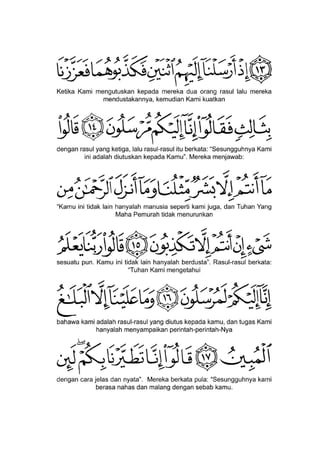 ﴿١٣﴾ إِذْ أَرْسَلْنَآ إِلَيْهِمُ ٱثْنَيْنِ فَكَذَّبُوهُمَا فَعَزَّزْنَا
Ketika Kami mengutuskan kepada mereka dua orang rasul lalu mereka
mendustakannya, kemudian Kami kuatkan
بِثَالِثٍ فَقَالُوٓا۟ إِنَّآ إِلَيْكُم مُّرْسَلُونَ ﴿١٤﴾ قَالُوا۟
dengan rasul yang ketiga, lalu rasul-rasul itu berkata: “Sesungguhnya Kami
ini adalah diutuskan kepada Kamu”. Mereka menjawab:
مَآ أَنتُمْ إِلَّا بَشَرٌ مِّثْلُنَا وَمَآ أَنزَلَ ٱلرَّحْمَٰنُ مِن
“Kamu ini tidak lain hanyalah manusia seperti kami juga, dan Tuhan Yang
Maha Pemurah tidak menurunkan
شَىْءٍ إِنْ أَنتُمْ إِلَّا تَكْذِبُونَ ﴿١٥﴾ قَالُوا۟ رَبُّنَا يَعْلَمُ
sesuatu pun. Kamu ini tidak lain hanyalah berdusta”. Rasul-rasul berkata:
“Tuhan Kami mengetahui
إِنَّآ إِلَيْكُمْ لَمُرْسَلُونَ ﴿١٦﴾ وَمَا عَلَيْنَآ إِلَّا ٱلْبَلَٰغُ
bahawa kami adalah rasul-rasul yang diutus kepada kamu, dan tugas Kami
hanyalah menyampaikan perintah-perintah-Nya
ٱلْمُبِينُ ﴿١٧﴾ قَالُوٓا۟ إِنَّا تَطَيَّرْنَا بِكُمْ ۖ لَئِن
dengan cara jelas dan nyata”. Mereka berkata pula: “Sesungguhnya kami
berasa nahas dan malang dengan sebab kamu.